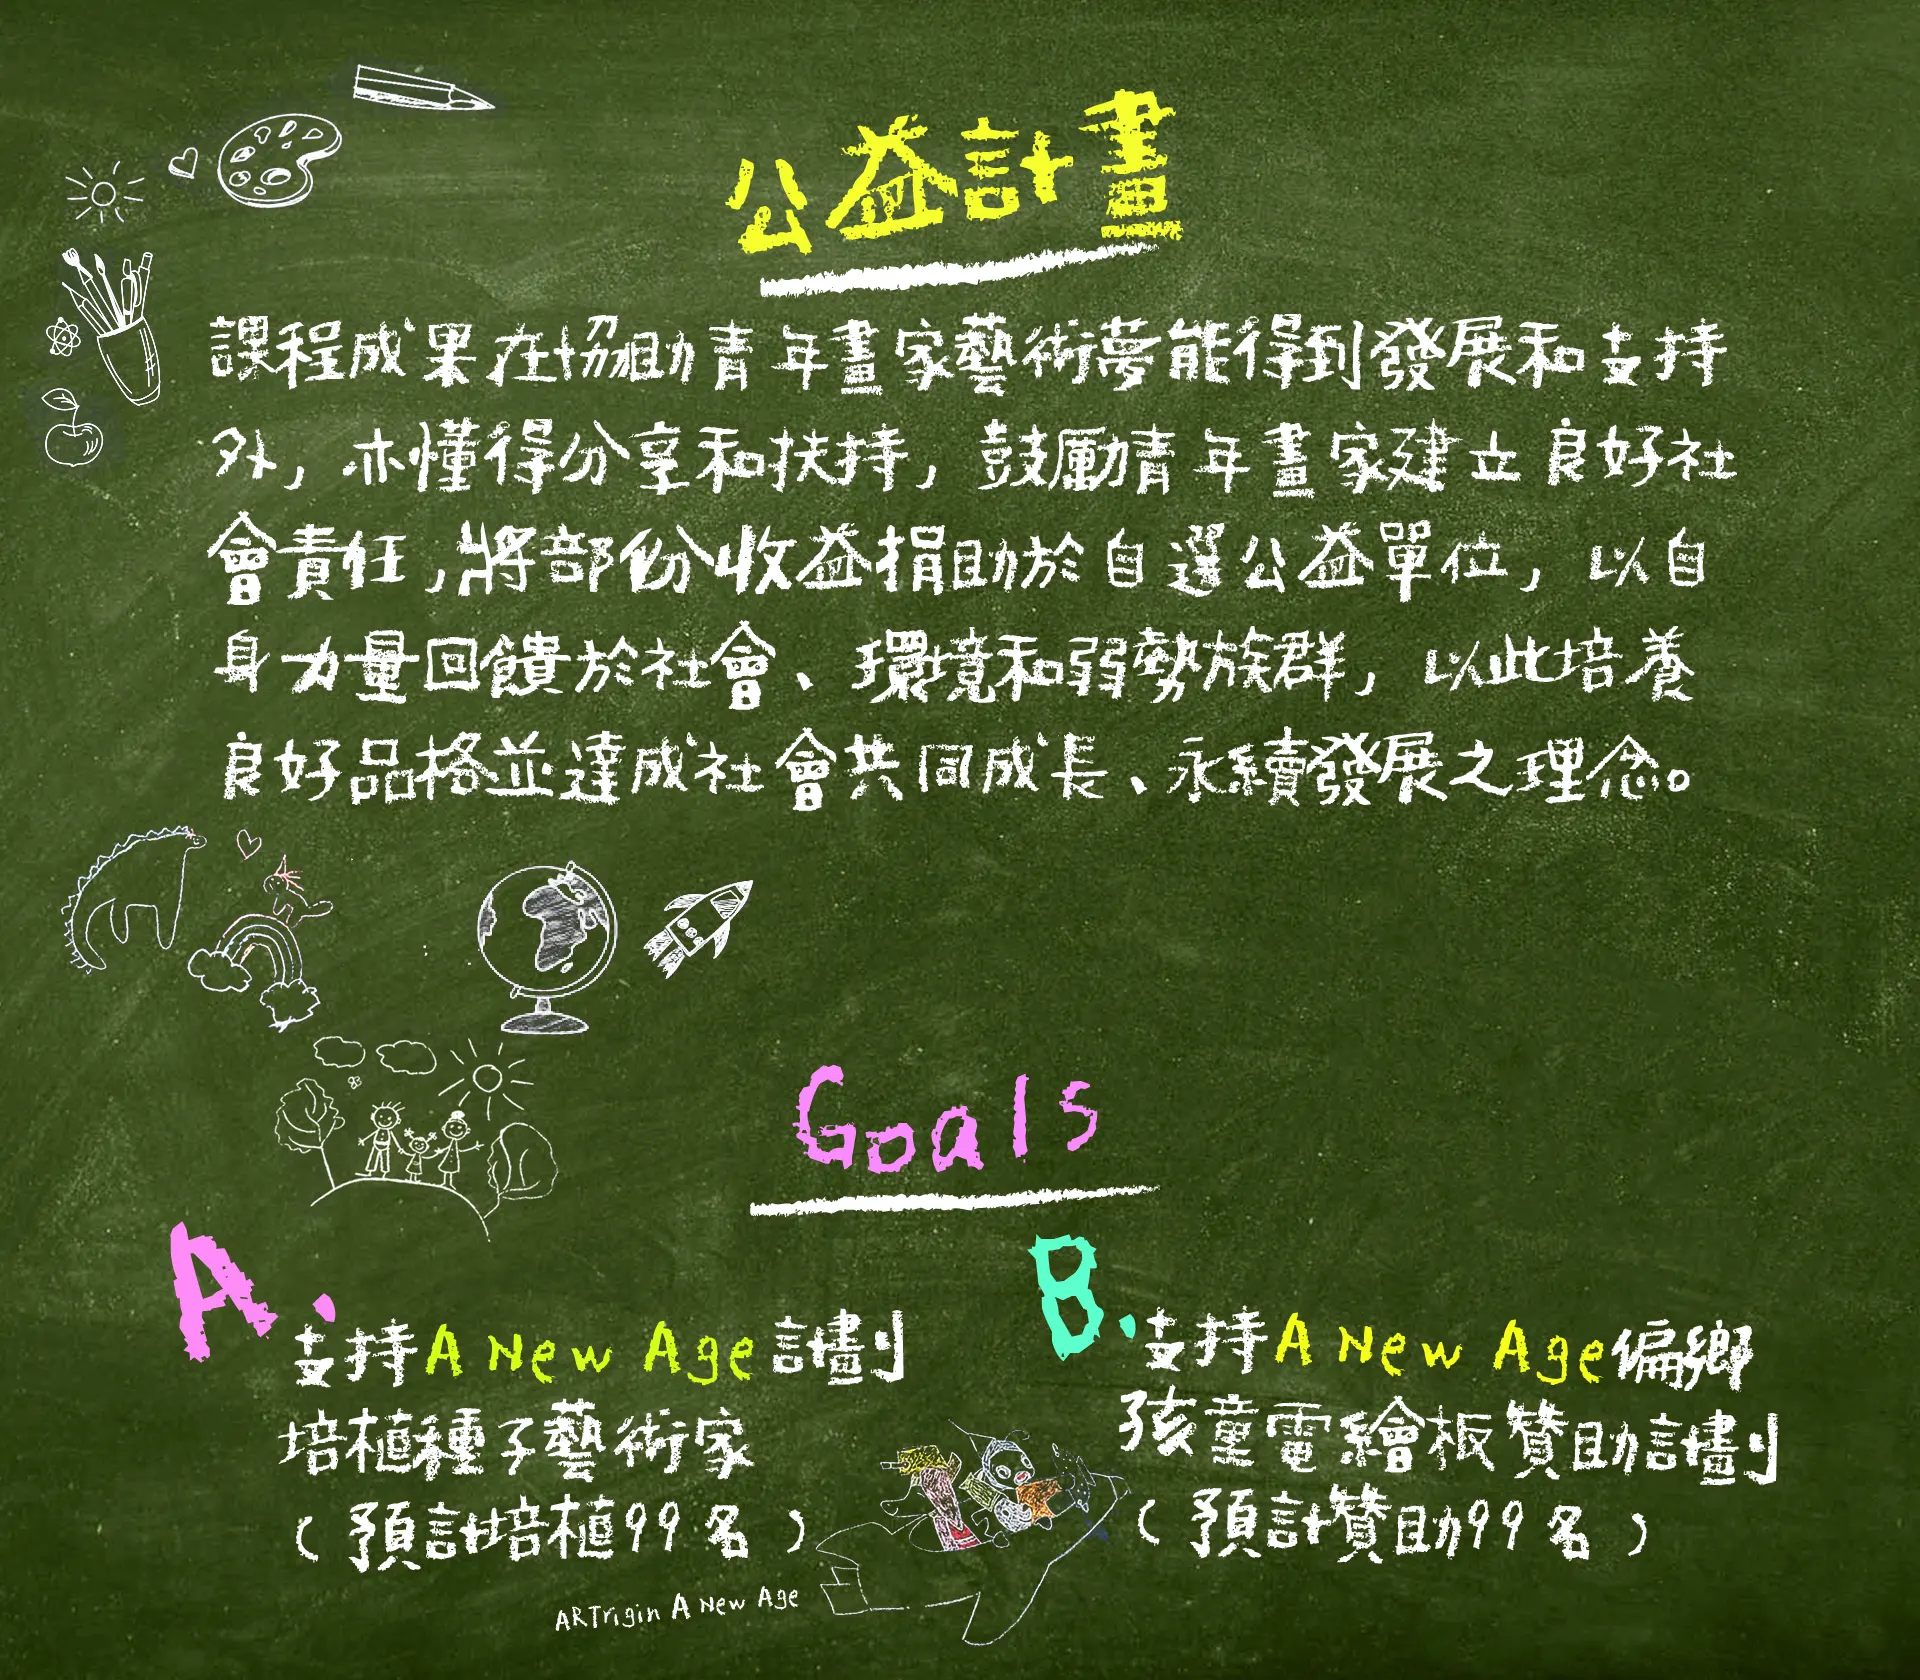 公益計畫
課程成果在協助青年畫家藝術夢能得到發展和支持
外，亦懂得分享和扶持，鼓勵青年畫家建立良好社
會責任，將部份收益捐助於自選公益單位，以自
身力量回饋於社會、環境和弱勢族群，以此培養
良好品格並達成社會共同成長、永續發展之理念。
Goals
A.
支持A New Age計劃
培植種子藝術家
（預計培植99名）
B.
支持A New Age偏鄉
孩童電繪板贊助計劃
（預計贊助99名）
ARTrigin A New Age